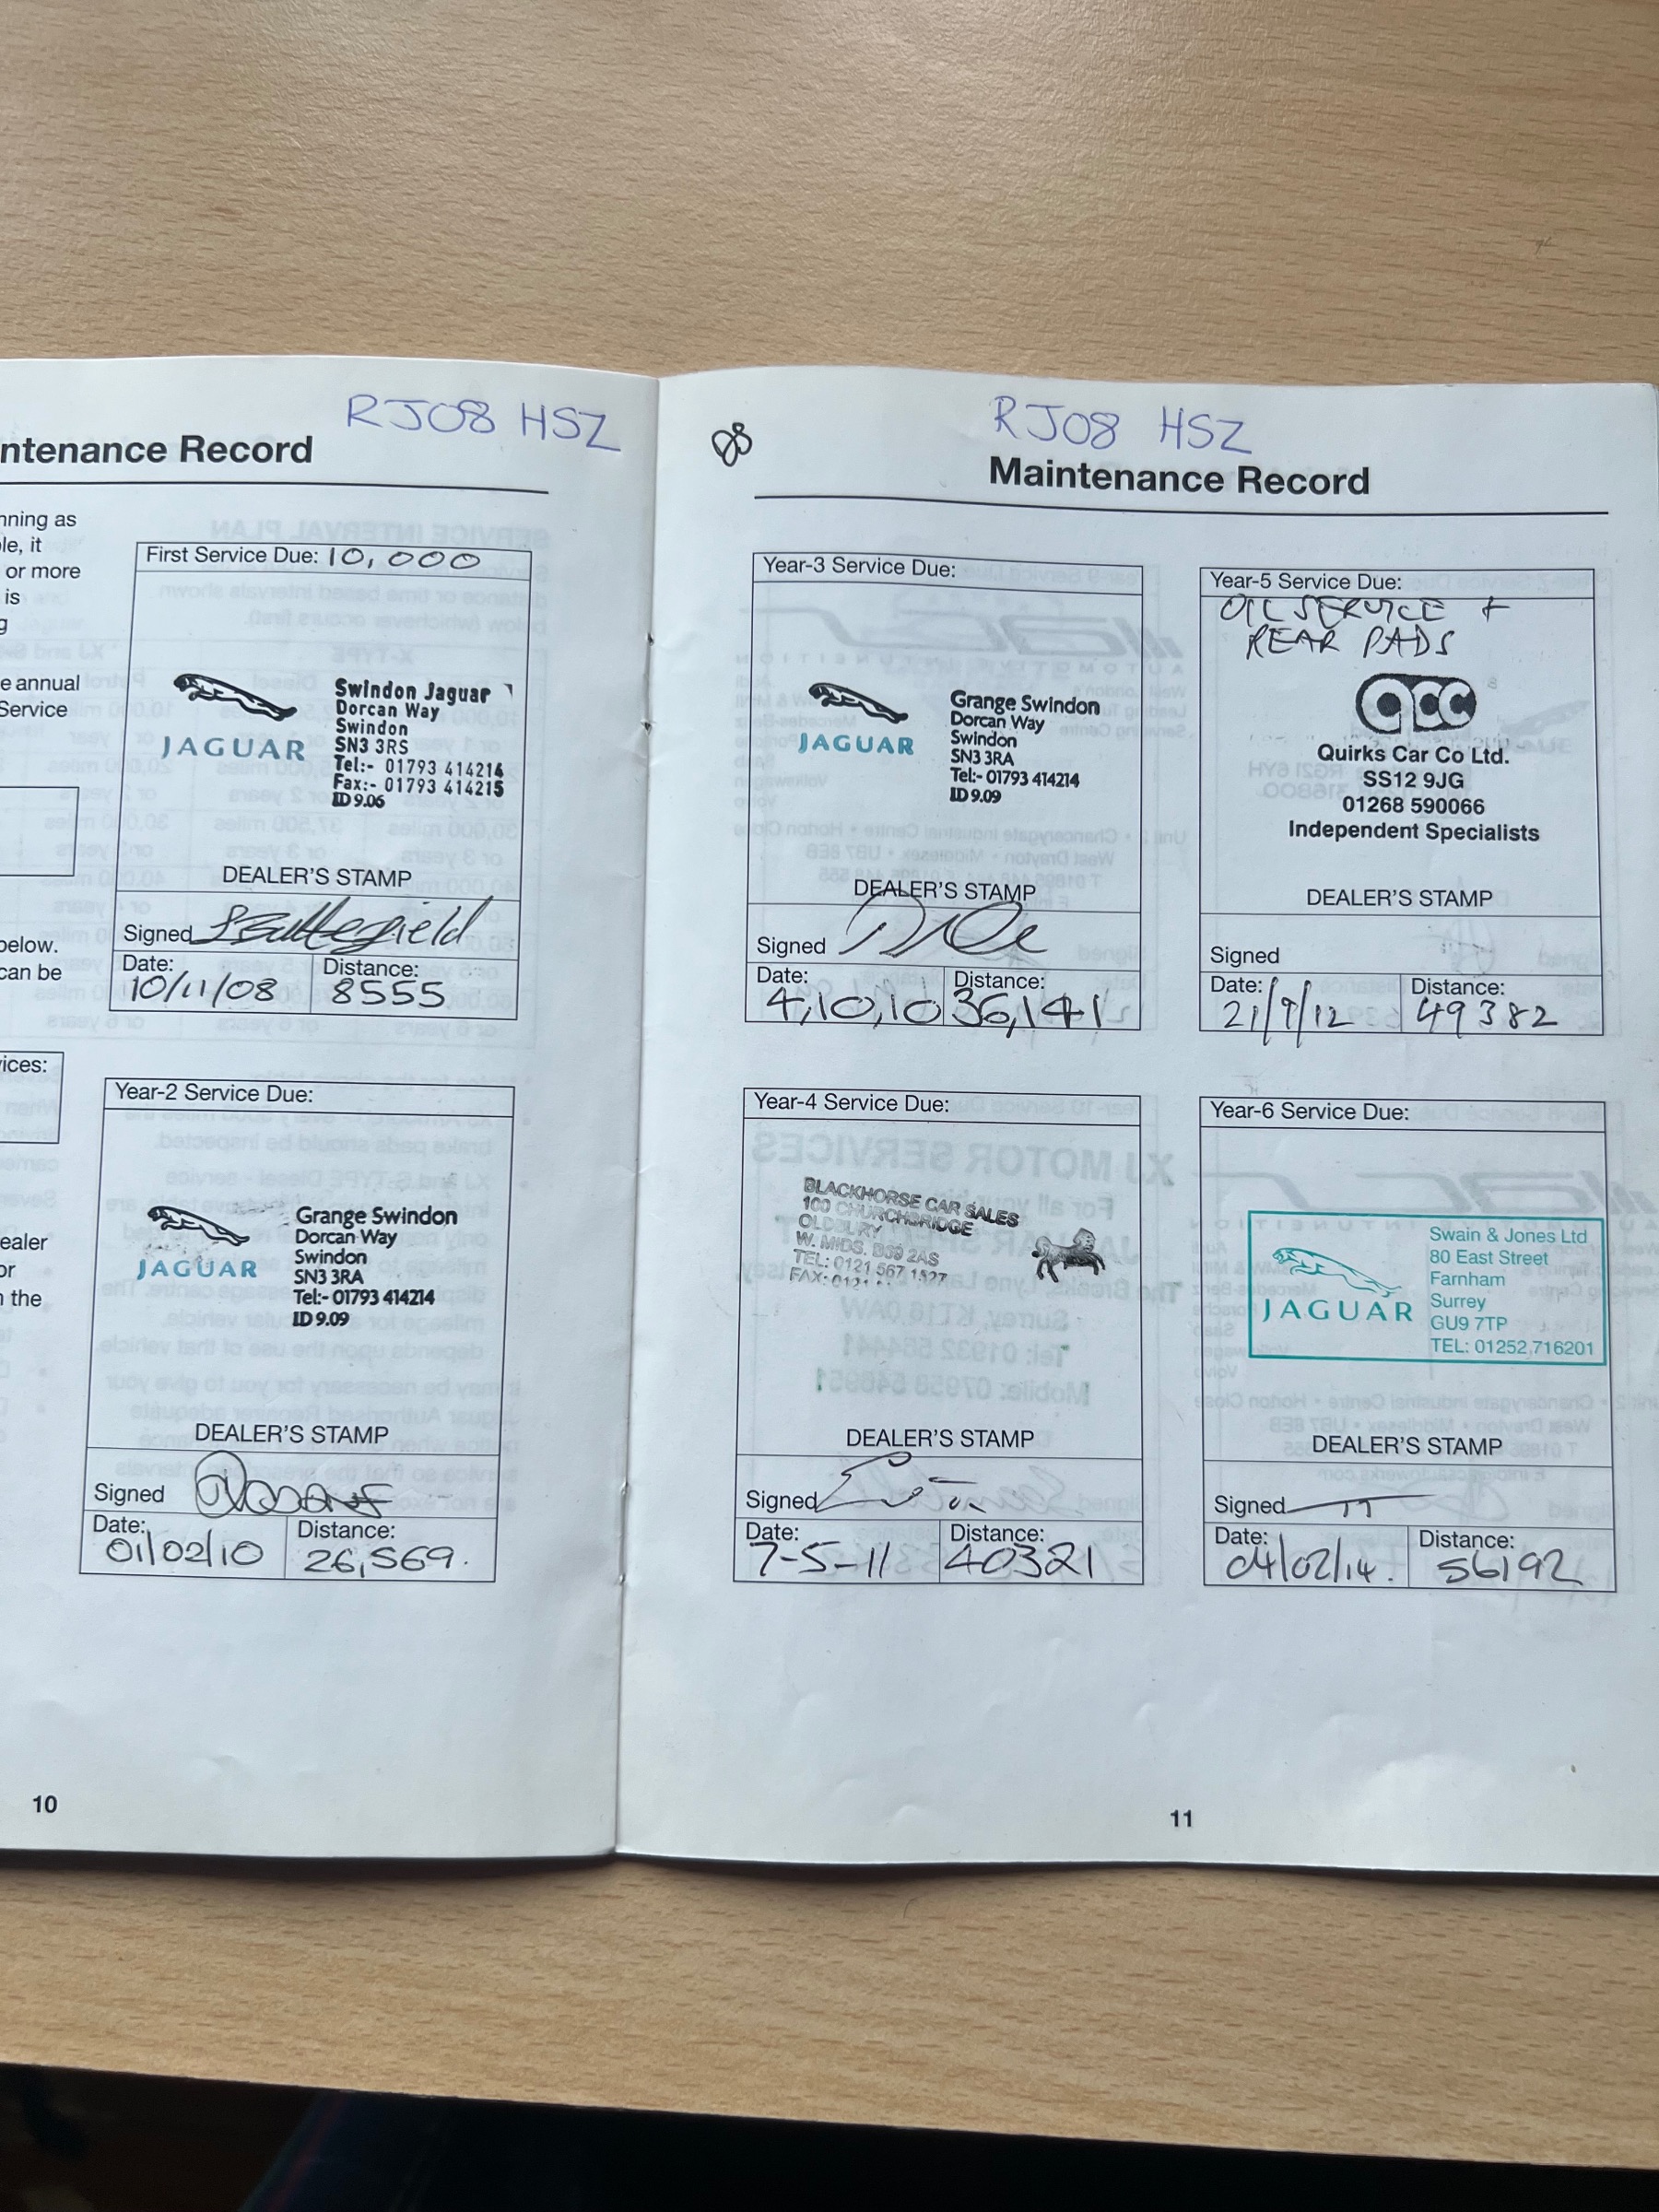 RJ08 HSZ
ntenance Record
nning as
le, it
or more
is
g
e annual
Service
below.
can be
ices:
ealer
or
n the
First Service Due: 10,000
JAGUAR
Swindon Jaguar
Dorcan Way
Swindon
SN3 3RS
Tel:- 01793 414214
Fax:- 01793 414215
ID 9.06
DEALER'S STAMP
Signed
Date: 10/11/08
Distance: 8555
Year-2 Service Due:
JAGUAR
Grange Swindon
Dorcan Way
Swindon
SN3 3RA
Tel:- 01793 414214
ID 9.09
DEALER'S STAMP
Signed
Date: 01/02/10
Distance: 26,569.
10
RJ08 HSZ
Maintenance Record
Year-3 Service Due:
JAGUAR
Grange Swindon
Dorcan Way
Swindon
SN3 3RA
Tel:- 01793 414214
ID 9.09
DEALER'S STAMP
Signed
Date: 4,10,10
Distance: 36,141
Year-4 Service Due:
BLACKHORSE CAR SALES
100 CHURCHBRIDGE
OLDBURY
W. MIDS. B69 2AS
TEL: 0121 567 1527
FAX: 0121
DEALER'S STAMP
Signed
Date: 7-5-11
Distance: 40321
Year-5 Service Due:
OIL SERVICE +
REAR PADS
qcc
Quirks Car Co Ltd.
SS12 9JG
01268 590066
Independent Specialists
DEALER'S STAMP
Signed
Date: 21/9/12
Distance: 49382
Year-6 Service Due:
JAGUAR
Swain & Jones Ltd
80 East Street
Farnham
Surrey
GU9 7TP
TEL: 01252 716201
DEALER'S STAMP
Signed
Date: 04/02/14.
Distance: 56192
11